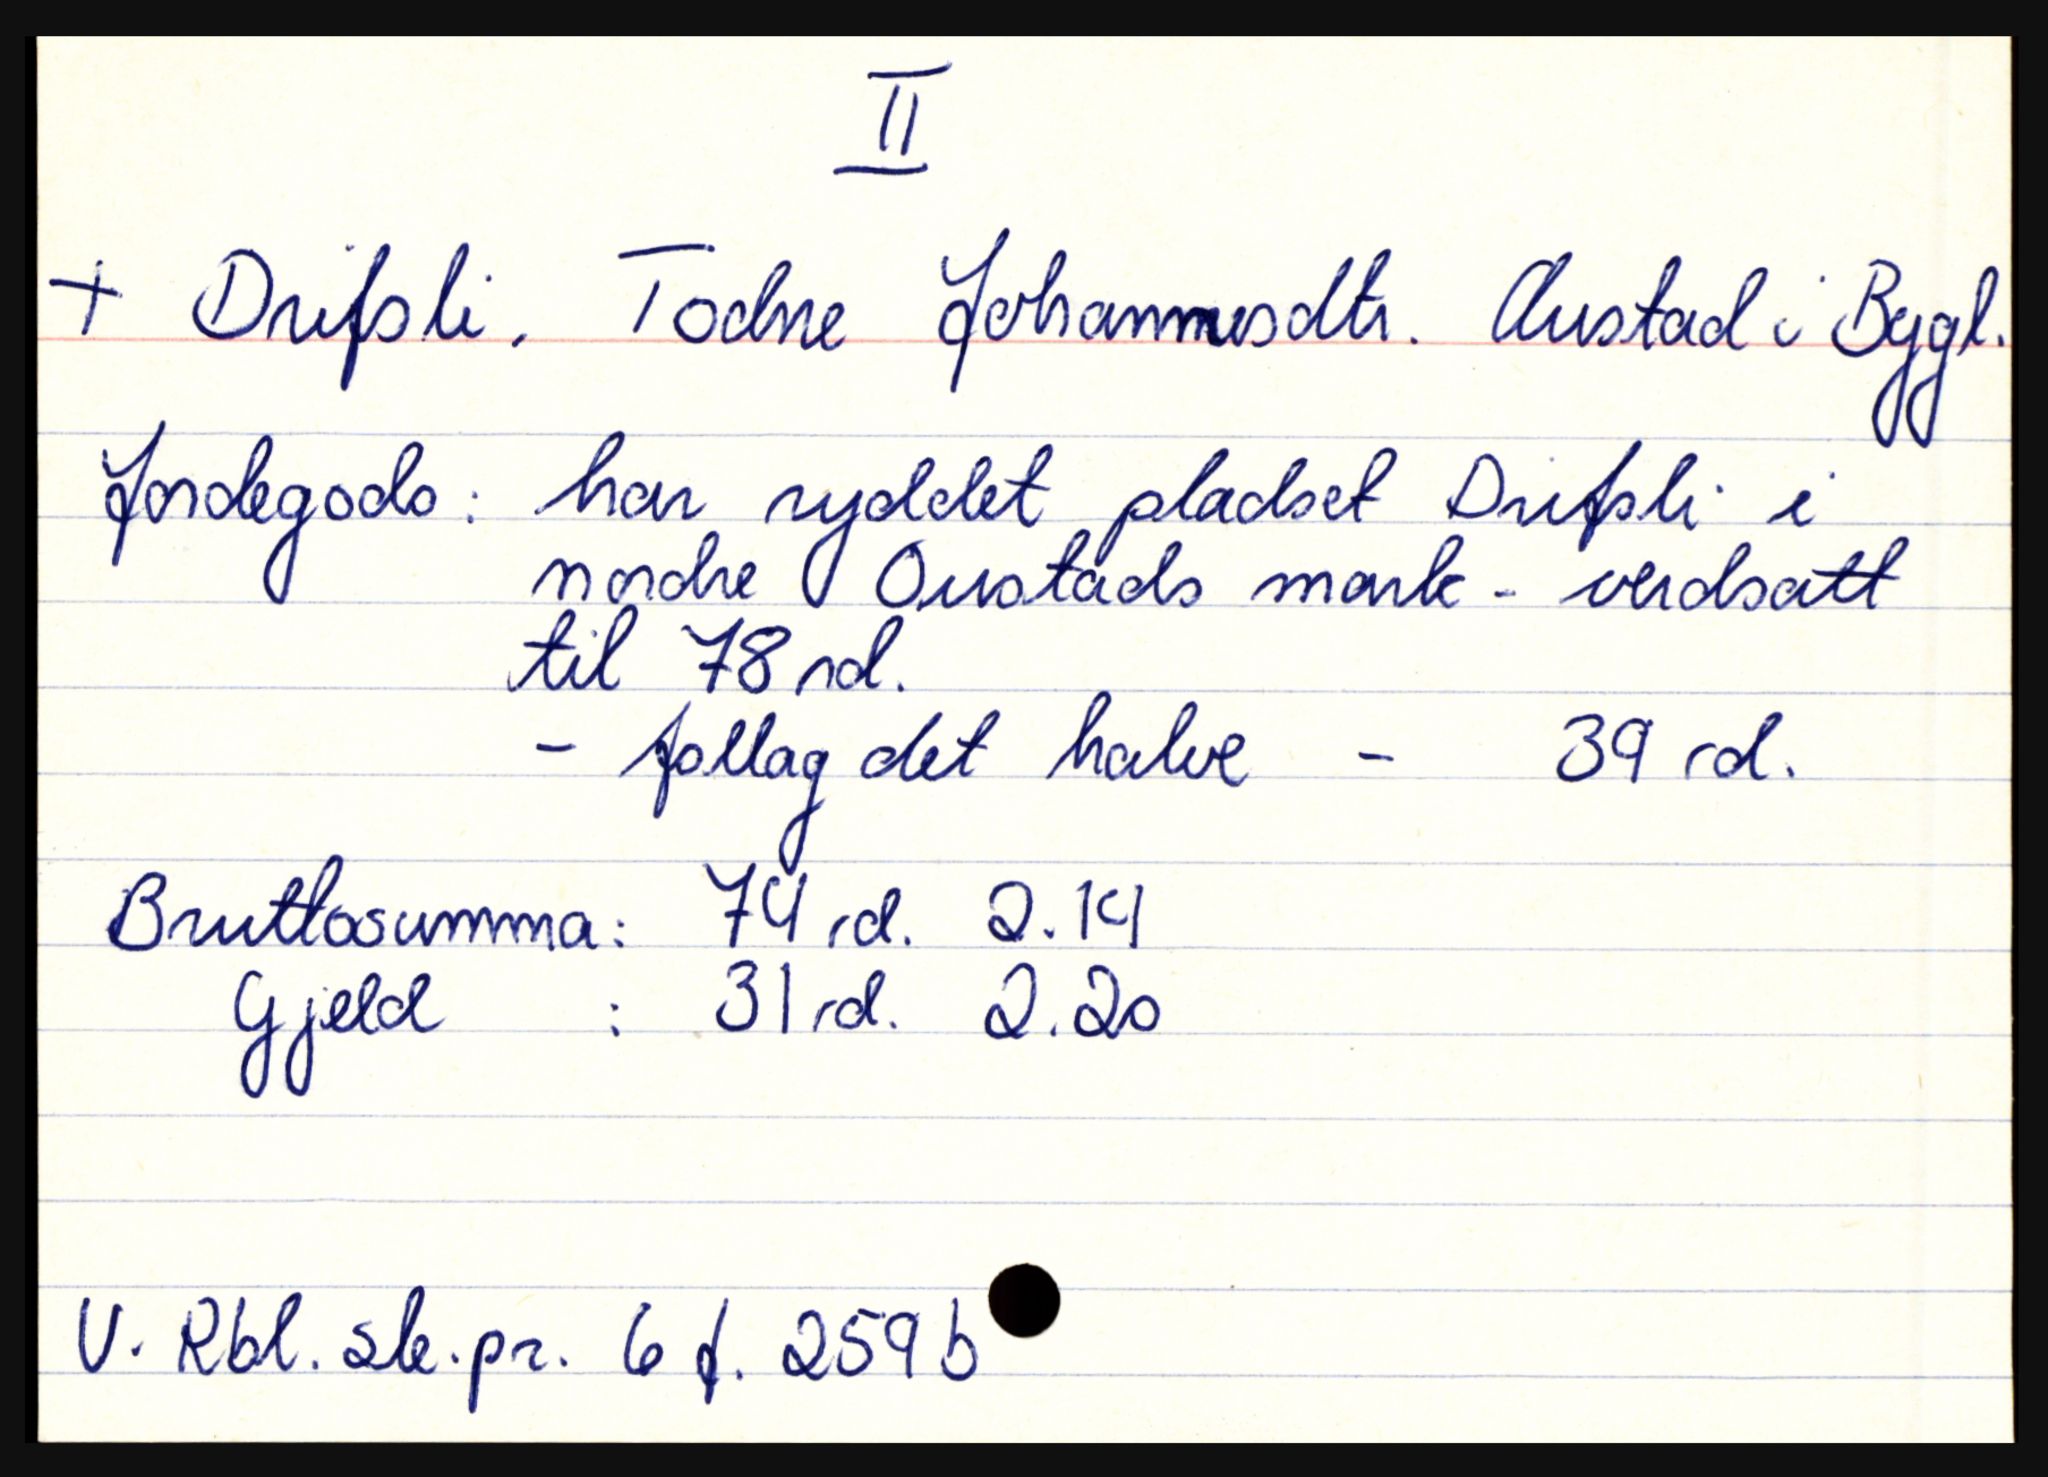 II
+ Drifsli. Todne Johannesdtr. Austad i Bygl.
Jordegods: har ryddet pladset Drifsli i
nordre Oustads mark - verdsatt
til 78 rd.
- follag det halve - 39 rd.
Bruttosumma: 74 rd. 2.14
Gjeld : 31 rd. 2.20
V. Rbl. sk.pr. 6 f. 259b